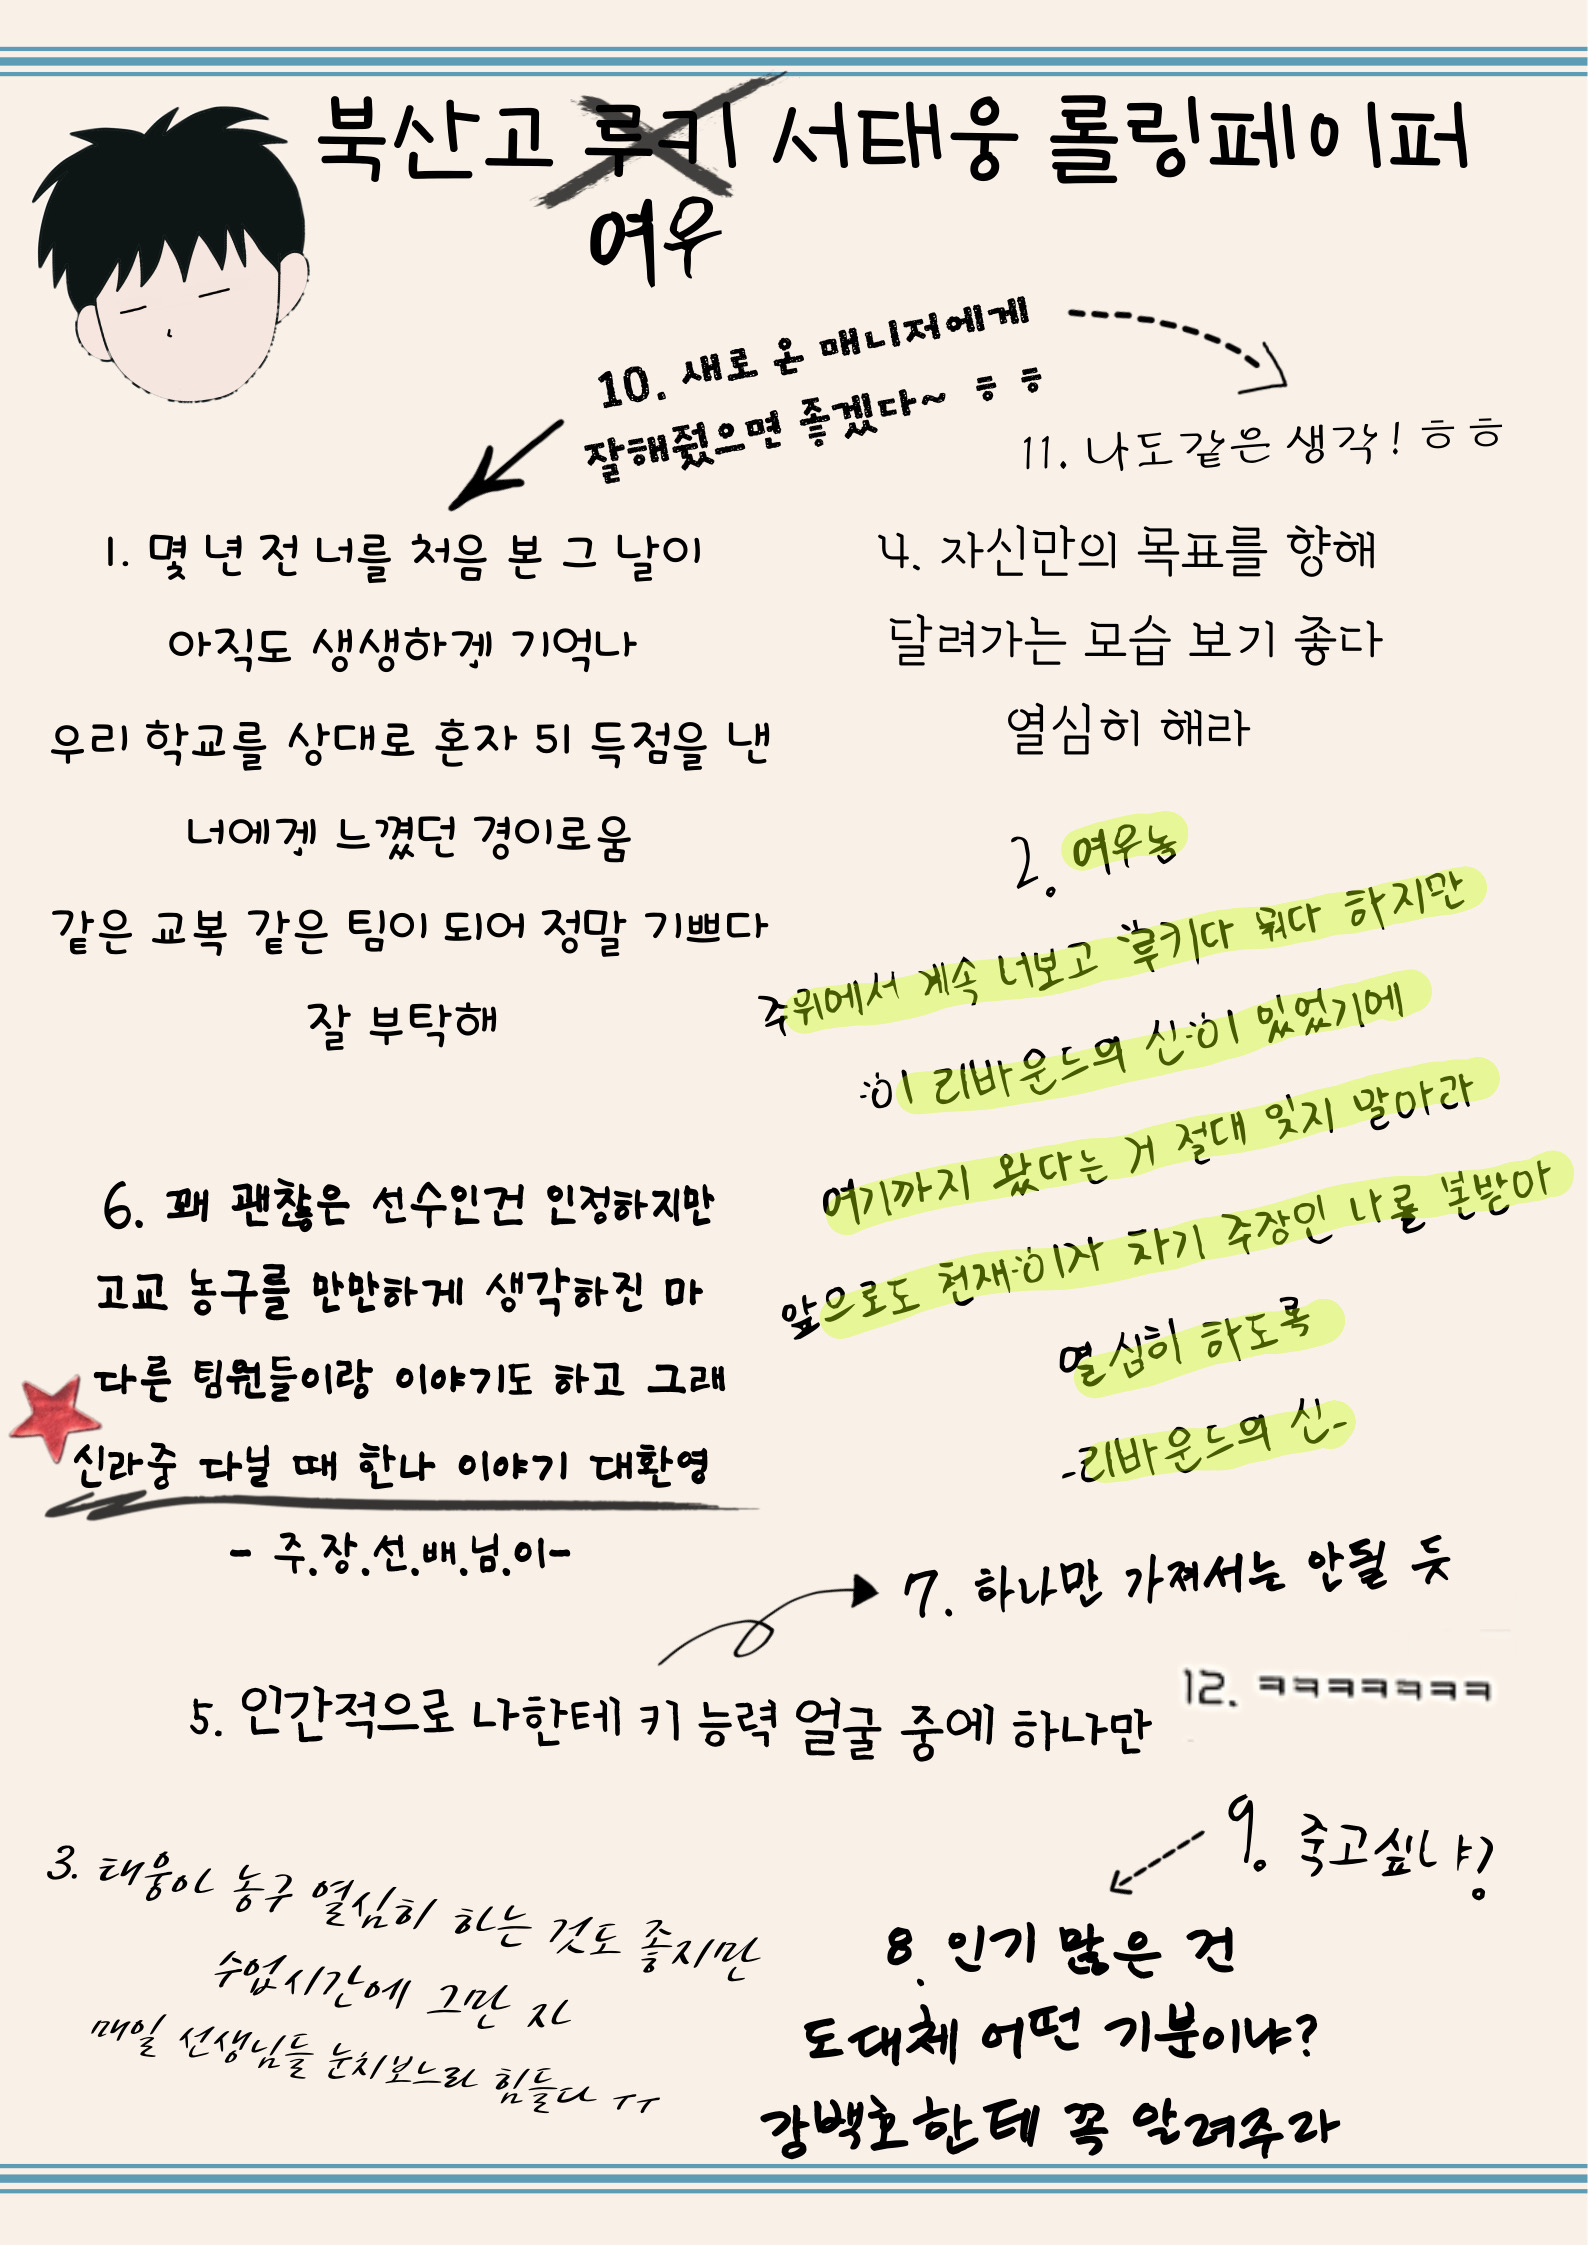 북산고 루키 서태웅 롤링페이퍼
여우
10. 새로 온 매니저에게
잘해줬으면 좋겠다~ ㅎㅎ
11. 나도같은 생각! ㅎㅎ
1. 몇 년 전 너를 처음 본 그 날이
아직도 생생하겐 기억나
우리 학교를 상대로 혼자 51 득점을 낸
너에겐 느꼈던 경이로움
같은 교복 같은 팀이 되어 정말 기쁘다
잘 부탁해
4. 자신만의 목표를 향해
달려가는 모습 보기 좋다
열심히 해라
2. 여우놈
주위에서 계속 너보고 루키다 뭐다 하지만
이 리바운드의 신이 있었기에
여기까지 왔다는 거 절대 잊지 말아라
앞으로도 천재이자 차기 주장인 나를 본받아
열심히 하도록
-리바운드의 신-
6. 꽤 괜찮은 선수인건 인정하지만
고교 농구를 만만하게 생각하진 마
다른 팀원들이랑 이야기도 하고 그래
신라중 다닐 때 한나 이야기 대환영
- 주.장.선.배.님.이-
7. 하나만 가져서는 안될 듯
5. 인간적으로 나한테 키 능력 얼굴 중에 하나만
12. ㅋㅋㅋㅋㅋㅋㅋ
3. 태웅아 농구 열심히 하는 것도 좋지만
수업시간에 그만 자
매일 선생님들 눈치보느라 힘들다 ㅜㅜ
9. 죽고싶냐?
8. 인기 많은 건
도대체 어떤 기분이냐?
강백호한테 꼭 알려주라